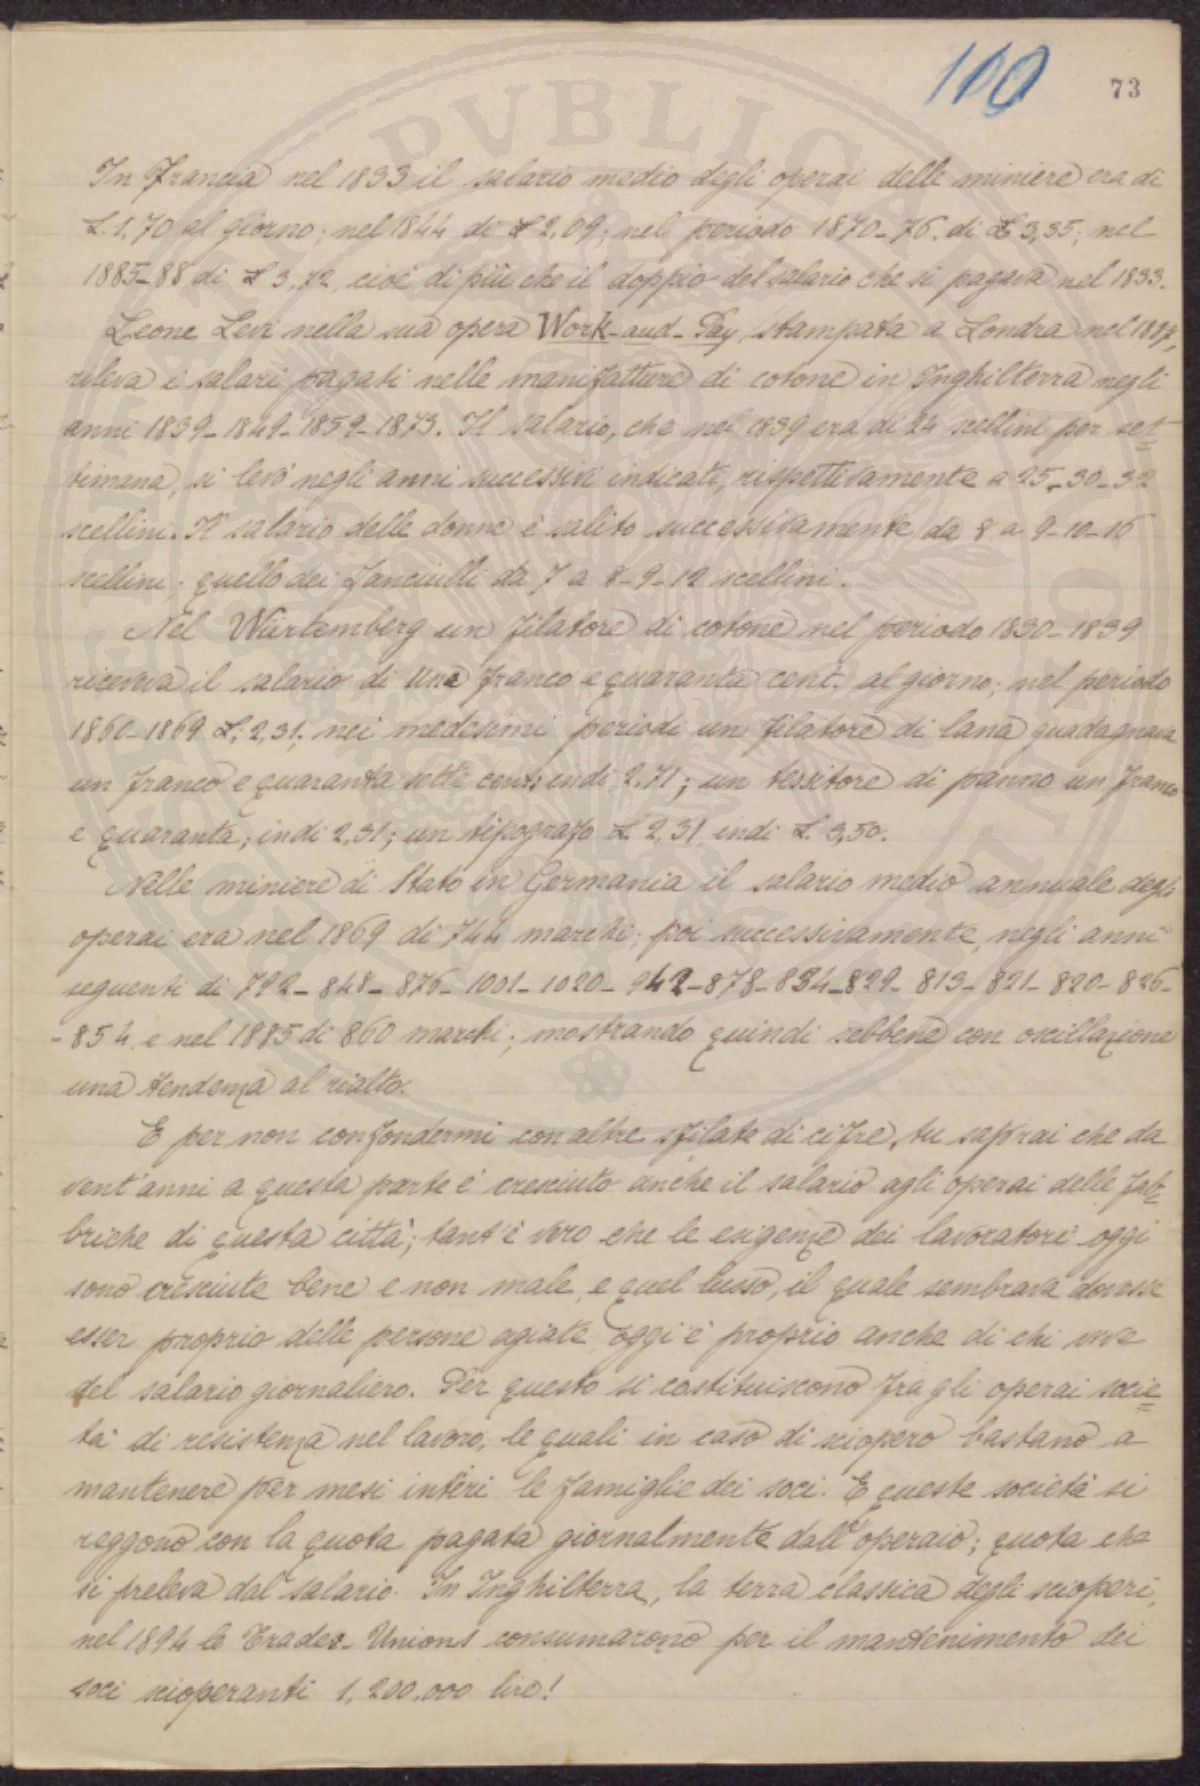 100 73
In Francia nel 1833 il salario medio degli operai delle miniere era di
L. 1,70 al giorno; nel 1844 di L 2,09; nel periodo 1870-76. di L 3,35; nel
1885-88 di L 3,72, cioè di più che il doppio del salario che si pagava nel 1833.
Leone Levi nella sua opera Work-aud-Pay, stampata a Londra nel 1887,
rileva i salari pagati nelle manifatture di cotone in Inghilterra negli
anni 1839-1849-1859-1873. Il salario, che nel 1839 era di 24 scellini per set=
timana, si levò negli anni successivi indicati, rispettivamente a 25-30-32
scellini. Il salario delle donne è salito successivamente da 8 a 9-10-16
scellini; quello dei fanciulli da 7 a 8-9-12 scellini.
Nel Würtemberg un filatore di cotone nel periodo 1830-1839
riceveva il salario di una franco e quaranta cent. al giorno; nel periodo
1860-1869 L. 2,31; nei medesimi periodi un filatore di lana guadagnava
un franco e quaranta sette cent; indi 2.71; un tessitore di panno un franco
e quaranta; indi 2,31; un tipografo L 2,31 indi L. 3,50.
Nelle miniere di Stato in Germania il salario medio annuale degli
operai era nel 1869 di 744 marchi; poi successivamente, negli anni
seguenti di 792-848-876-1001-1020-942-878-834-829-813-821-820-826-
-854 e nel 1885 di 860 marchi; mostrando quindi sebbene con oscillazione
una tendenza al rialto.
E per non confondermi con altre sfilate di cifre, tu saprai che da
vent'anni a questa parte è cresciuto anche il salario agli operai delle fab=
briche di questa città; tant'è vero che le esigenze dei lavoratori oggi
sono cresciute bene e non male, e quel lusso, il quale sembrava dovesse
esser proprio delle persone agiate, oggi è proprio anche di chi vive
del salario giornaliero. Per questo si costituiscono fra gli operai socie=
tà di resistenza nel lavoro, le quali in caso di sciopero bastano a
mantenere per mesi intieri le famiglie dei soci. E queste società si
reggono con la quota pagata giornalmente dall'operaio; quota che
si preleva dal salario. In Inghilterra, la terra classica degli scioperi,
nel 1894 le Trades-Unions consumarono per il mantenimento dei
soci scioperanti 1,200,000 lire!